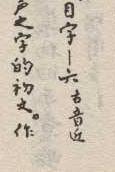 目字—六古音近
声之字的初文。作